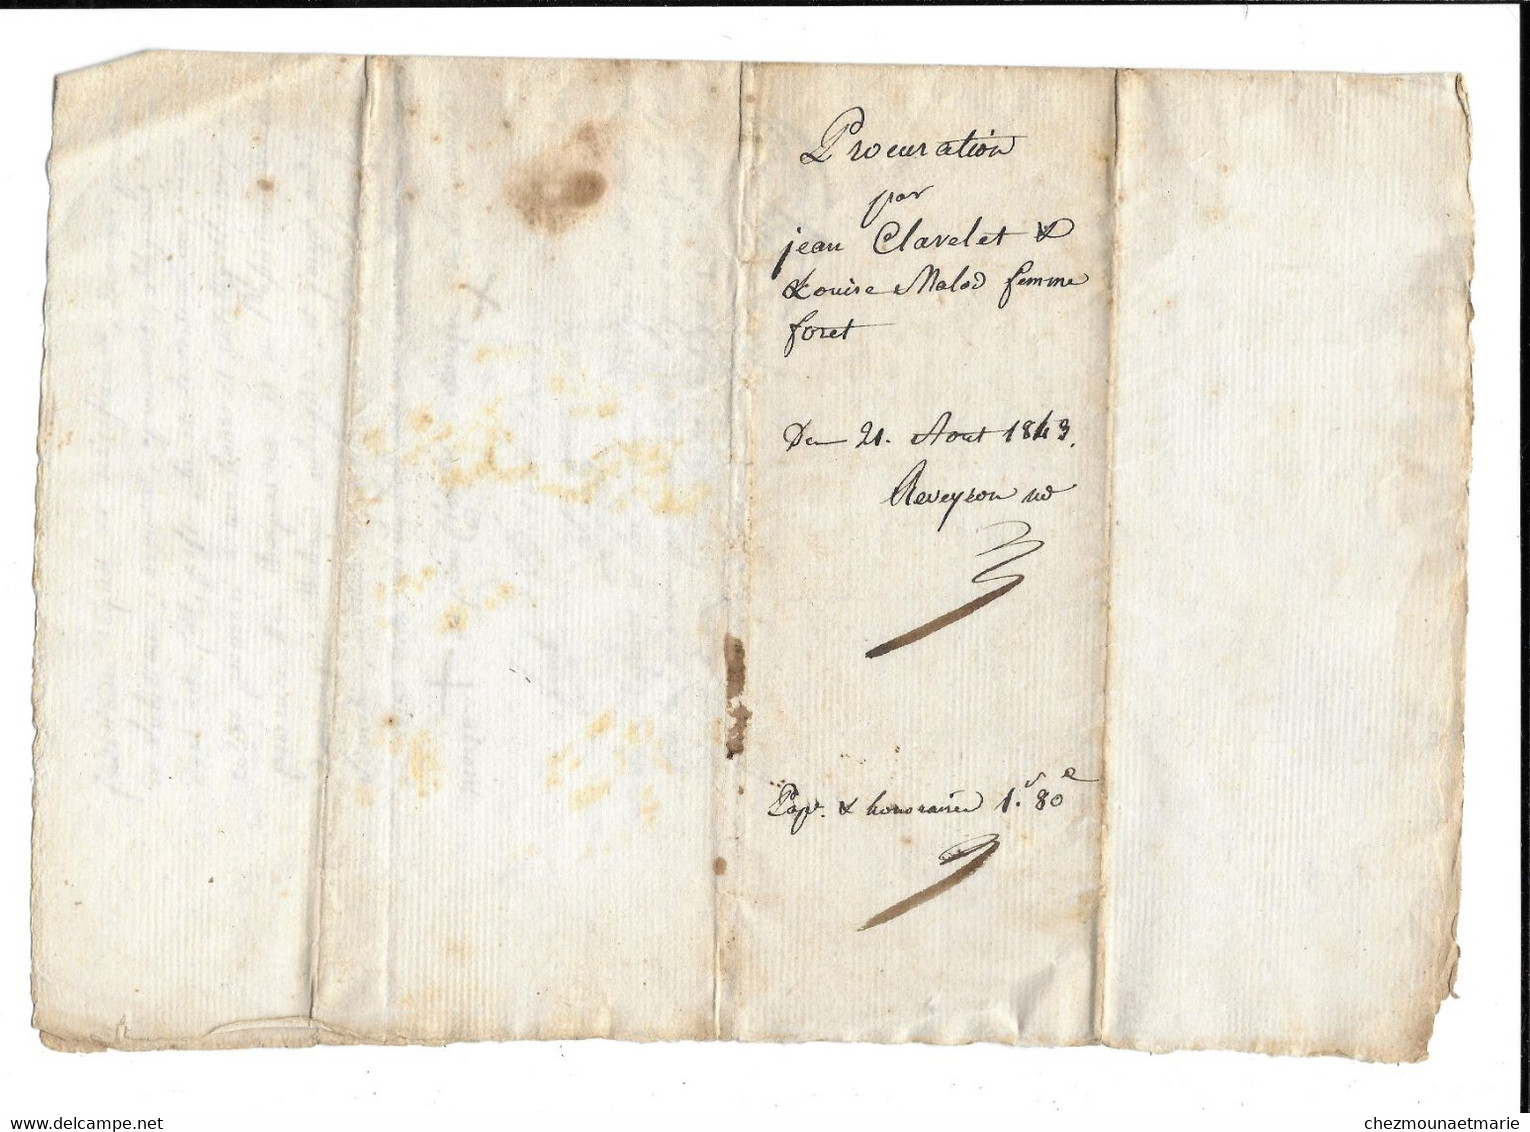 Procuration
par
jean Clavelet &
Louise Malod femme
foret
Du 21. Aout 1843.
Reveyron nre
Papr. & honoraires 1.f 80c
chezmounaetmarie